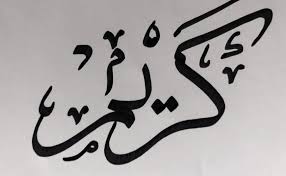 كريم